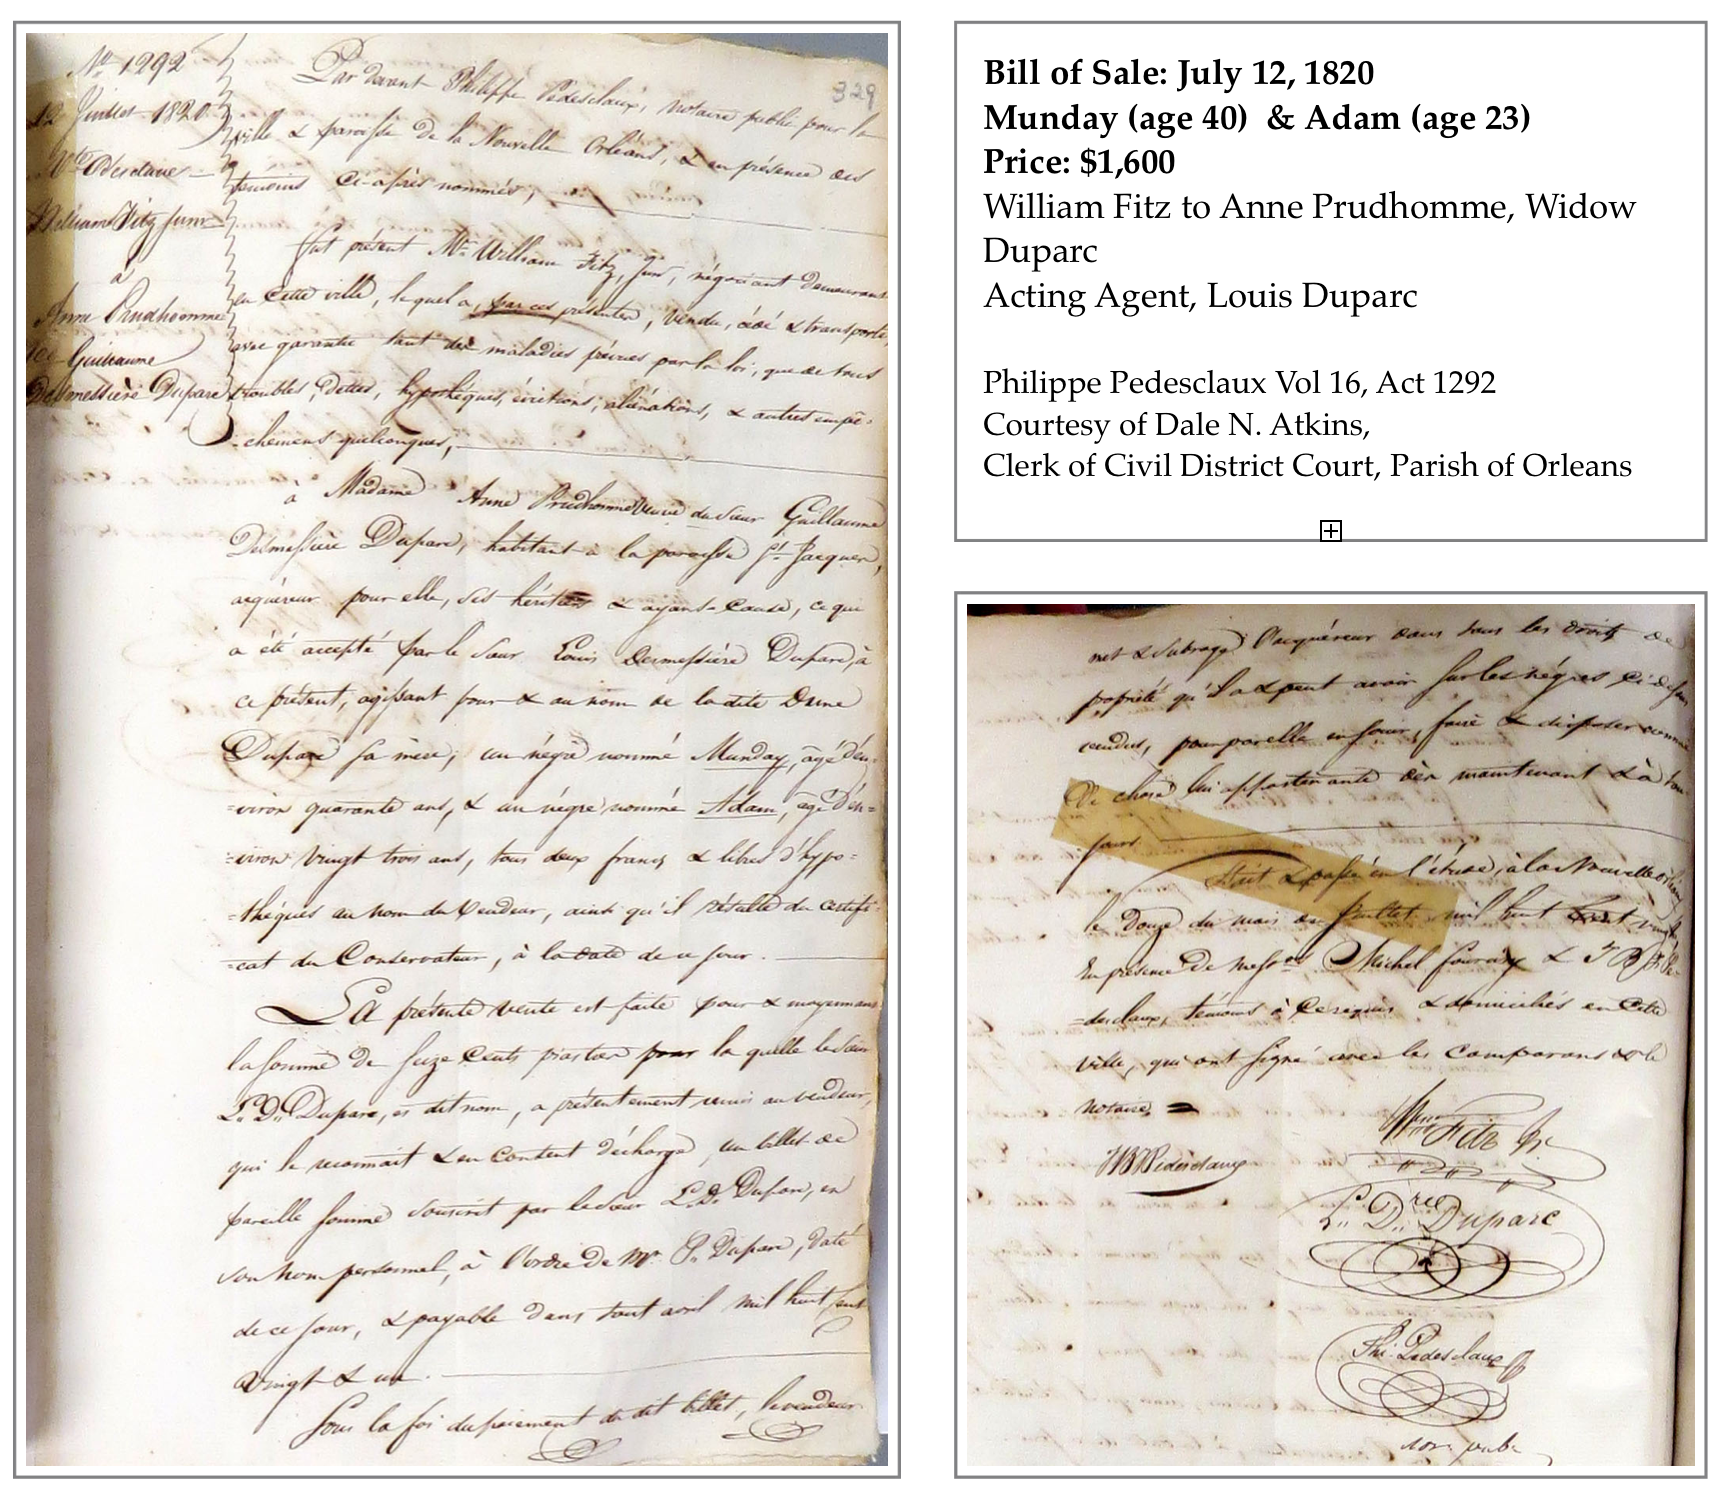 Nº 1292
12 Juillet 1820
Vte d'Esclaves
William Fitz Junr
à
Anne Prudhomme
Guillaume
Delmessière Duparc
329
Par devant Philippe Pedesclaux, notaire public pour la
ville & paroisse de la Nouvelle Orléans, & en présence des
témoins ci-après nommés,
fut présent Mr. William Fitz, Junr, négociant demeurant
en cette ville, lequel a, par ces présentes, vendu, cédé & transporté,
avec garantie tant des maladies prévues par la loi, que de tous
troubles, dettes, hypothèques, évictions, aliénations, & autres empê-
-chemens quelconques,
à Madame Anne Prudhomme Veuve du Sieur Guillaume
Delmessière Duparc, habitant à la paroisse St. Jacques,
acquéreur pour elle, ses héritiers & ayans-Cause, ce qui
a été accepté par le Sieur Louis Demessière Duparc, à
ce présent, agissant pour & au nom de la dite Dame
Duparc sa mère; un nègre nommé Munday, âgé d'en-
-viron quarante ans, & un nègre nommé Adam, âgé d'en-
-viron vingt trois ans, tous deux francs & libres d'hypo-
-thèques au nom du Vendeur, ainsi qu'il résulte du certifi-
-cat du Conservateur, à la date de ce jour.
La présente vente est faite pour & moyennant
la somme de seize Cents piastres pour la quelle le Sieur
L. D. Duparc, es dit nom, a présentement remis au vendeur,
qui le reconnait & en Consent décharge, un billet de
pareille somme souscrit par le Sieur L. D. Duparc, en
son nom personnel, à l'ordre de Mr. Duparc, daté
de ce jour, & payable dans tout avril mil huit cent
vingt & un.
Sous la foi du paiement du dit billet, le vendeur
Bill of Sale: July 12, 1820
Munday (age 40) & Adam (age 23)
Price: $1,600
William Fitz to Anne Prudhomme, Widow
Duparc
Acting Agent, Louis Duparc
Philippe Pedesclaux Vol 16, Act 1292
Courtesy of Dale N. Atkins,
Clerk of Civil District Court, Parish of Orleans
met & subroge l'acquéreur dans tous les droits de
propriété qu'il a & peut avoir sur les nègres ci-dessus
vendus, pour par elle en jouir, faire & disposer comme
De chose lui appartenante dès maintenant & à tou-
jours.
Fait & passé en l'étude, à la Nouvelle Orléans,
le douze du mois de Juillet mil huit Cent vingt
En présence de Messrs Michel &
-desclaux, témoins à ce requis & domiciliés en Cette
ville, qui ont signé avec les Comparans & le
notaire
Wm Fitz Jr.
L. D. Duparc
Phi. Pedesclaux
not. pub.